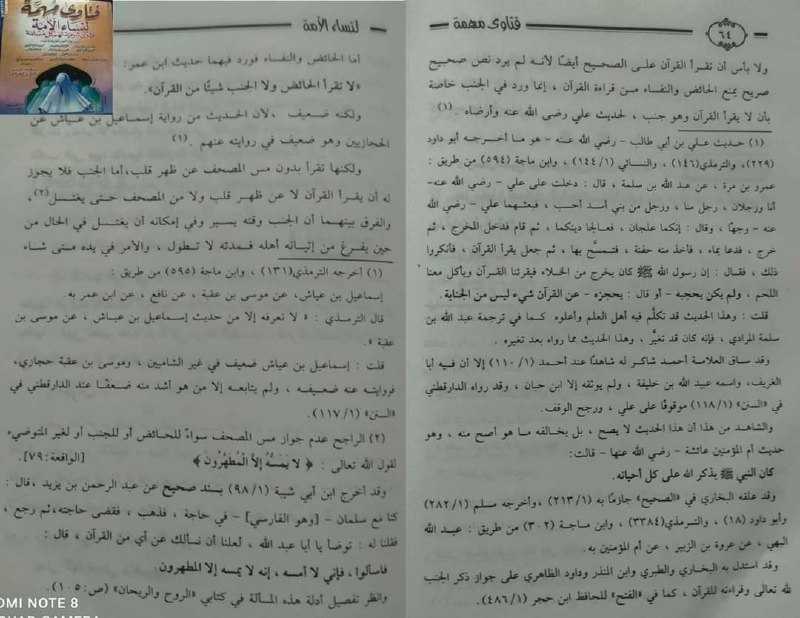 فتاوى مهمة
٦٤
ولا بأس أن تقرأ القرآن على الصحيح أيضًا لأنه لم يرد نص صحيح
صريح يمنع الحائض والنفساء من قراءة القرآن ، إنما ورد في الجنب خاصة
بأن لا يقرأ القرآن وهو جنب ، لحديث علي رضى الله عنه وأرضاه . (١)
(١) حديث علي بن أبي طالب - رضي الله عنه - هو ما أخرجه أبو داود
(٢٢٩)، والترمذي(١٤٦) ، والنسائي (١/١٤٤) ، وابن ماجة (٥٩٤) من طريق :
عمرو بن مرة ، عن عبد الله بن سلمة ، قال : دخلت على علي - رضي الله عنه-
أنا ورجلان ، رجل منا ، ورجل من بني أسد أحب ، فبعثهما علي - رضي الله
عنه - وجهًا ، وقال : إنكما علجان ، فعالجا دينكما ، ثم قام فدخل المخرج ، ثم
خرج ، فدعا بماء ، فأخذ منه حفنة ، فتمسَّح بها ، ثم جعل يقرأ القرآن ، فأنكروا
ذلك ، فقال : إن رسول الله ﷺ كان يخرج من الخلاء فيقرئنا القرآن ويأكل معنا
اللحم ، ولم يكن يحجبه - أو قال : يحجزه - عن القرآن شيء ليس من الجنابة.
قلت : وهذا الحديث قد تكلَّم فيه أهل العلم وأعلوه كما في ترجمة عبد الله بن
سلمة المرادي ، فإنه كان قد تغيَّر ، وهذا الحديث مما رواه بعد تغيره .
وقد ساق العلامة أحمد شاكر له شاهدًا عند أحمد (١/١١٠) إلا أن فيه أبا
الغريف، واسمه عبيد الله بن خليفة ، ولم يوثقه إلا ابن حبان ، وقد رواه الدارقطني
في «السنن» (١/١١٨) موقوفًا على علي ، ورجح الوقف.
والشاهد من هذا أن هذا الحديث لا يصح ، بل يخالفه ما هو أصح منه ، وهو
حديث أم المؤمنين عائشة - رضي الله عنها - قالت:
كان النبي ﷺ يذكر الله على كل أحيانه .
وقد علقه البخاري في «الصحيح» جازمًا به (١/٢١٣) ،وأخرجه مسلم (١/٢٨٢)
وأبو داود (١٨) ، والترمذي(٣٣٨٤) ، وابن ماجة (٣٠٢) من طريق : عبد الله
البهي ، عن عروة بن الزبير ، عن أم المؤمنين به.
وقد استدل به البخاري والطبري وابن المنذر وداود الظاهري على جواز ذكر الجنب
لله تعالى وقراءته للقرآن ، كما في «الفتح» للحافظ ابن حجر (١/٤٨٦).
لنساء الأمة
فتاوى مهمة
لنساء الأمة
أما الحائض والنفساء فورد فيهما حديث ابن عمر:
«لا تقرأ الحائض ولا الجنب شيئًا من القرآن».
ولكنه ضعيف ،لأن الحديث من رواية إسماعيل بن عياش عن
الحجازيين وهو ضعيف في روايته عنهم . (١)
ولكنها تقرأ بدون مس المصحف عن ظهر قلب،أما الجنب فلا يجوز
له أن يقرأ القرآن لا عن ظهر قلب ولا من المصحف حتى يغتسل(٢)،
والفرق بينهما أن الجنب وقته يسير وفي إمكانه أن يغتسل في الحال من
حين يفرغ من إتيانه أهله فمدته لا تطول ، والأمر في يده متى شاء
(١) أخرجه الترمذي(١٣١) ، وابن ماجة (٥٩٥) من طريق :
إسماعيل بن عياش، عن موسى بن عقبة ، عن نافع ، عن ابن عمر به.
قال الترمذي : « لا نعرفه إلا من حديث إسماعيل بن عياش ، عن موسى بن
عقبة ».
قلت : إسماعيل بن عياش ضعيف في غير الشاميين ، وموسى بن عقبة حجازي،
فروايته عنه ضعيفه ، ولم يتابعه إلا من هو أشد منه ضعفًا عند الدارقطني في
«السنن» (١/١١٧).
(٢) الراجح عدم جواز مس المصحف سواءً للحائض أو للجنب أو لغير المتوضيء
لقول الله تعالى : ﴿ لا يَمَسُّهُ إلاَّ الْمُطَهَّرُونَ ﴾ [الواقعة:٧٩].
وقد أخرج ابن أبي شيبة (١/٩٨) بسند صحيح عن عبد الرحمن بن يزيد ،قال :
كنا مع سلمان - [وهو الفارسي] - في حاجة ، فذهب ، فقضى حاجته،ثم رجع ،
فقلنا له : توضأ يا أبا عبد الله ، لعلنا أن نسألك عن آي من القرآن ، قال :
فاسألوا ، فإني لا أمسه ، إنه لا يمسه إلا المطهرون.
وانظر تفصيل أدلة هذه المسألة في كتابي «الروح والريحان» (ص:١٠٥).
OMI NOTE 8